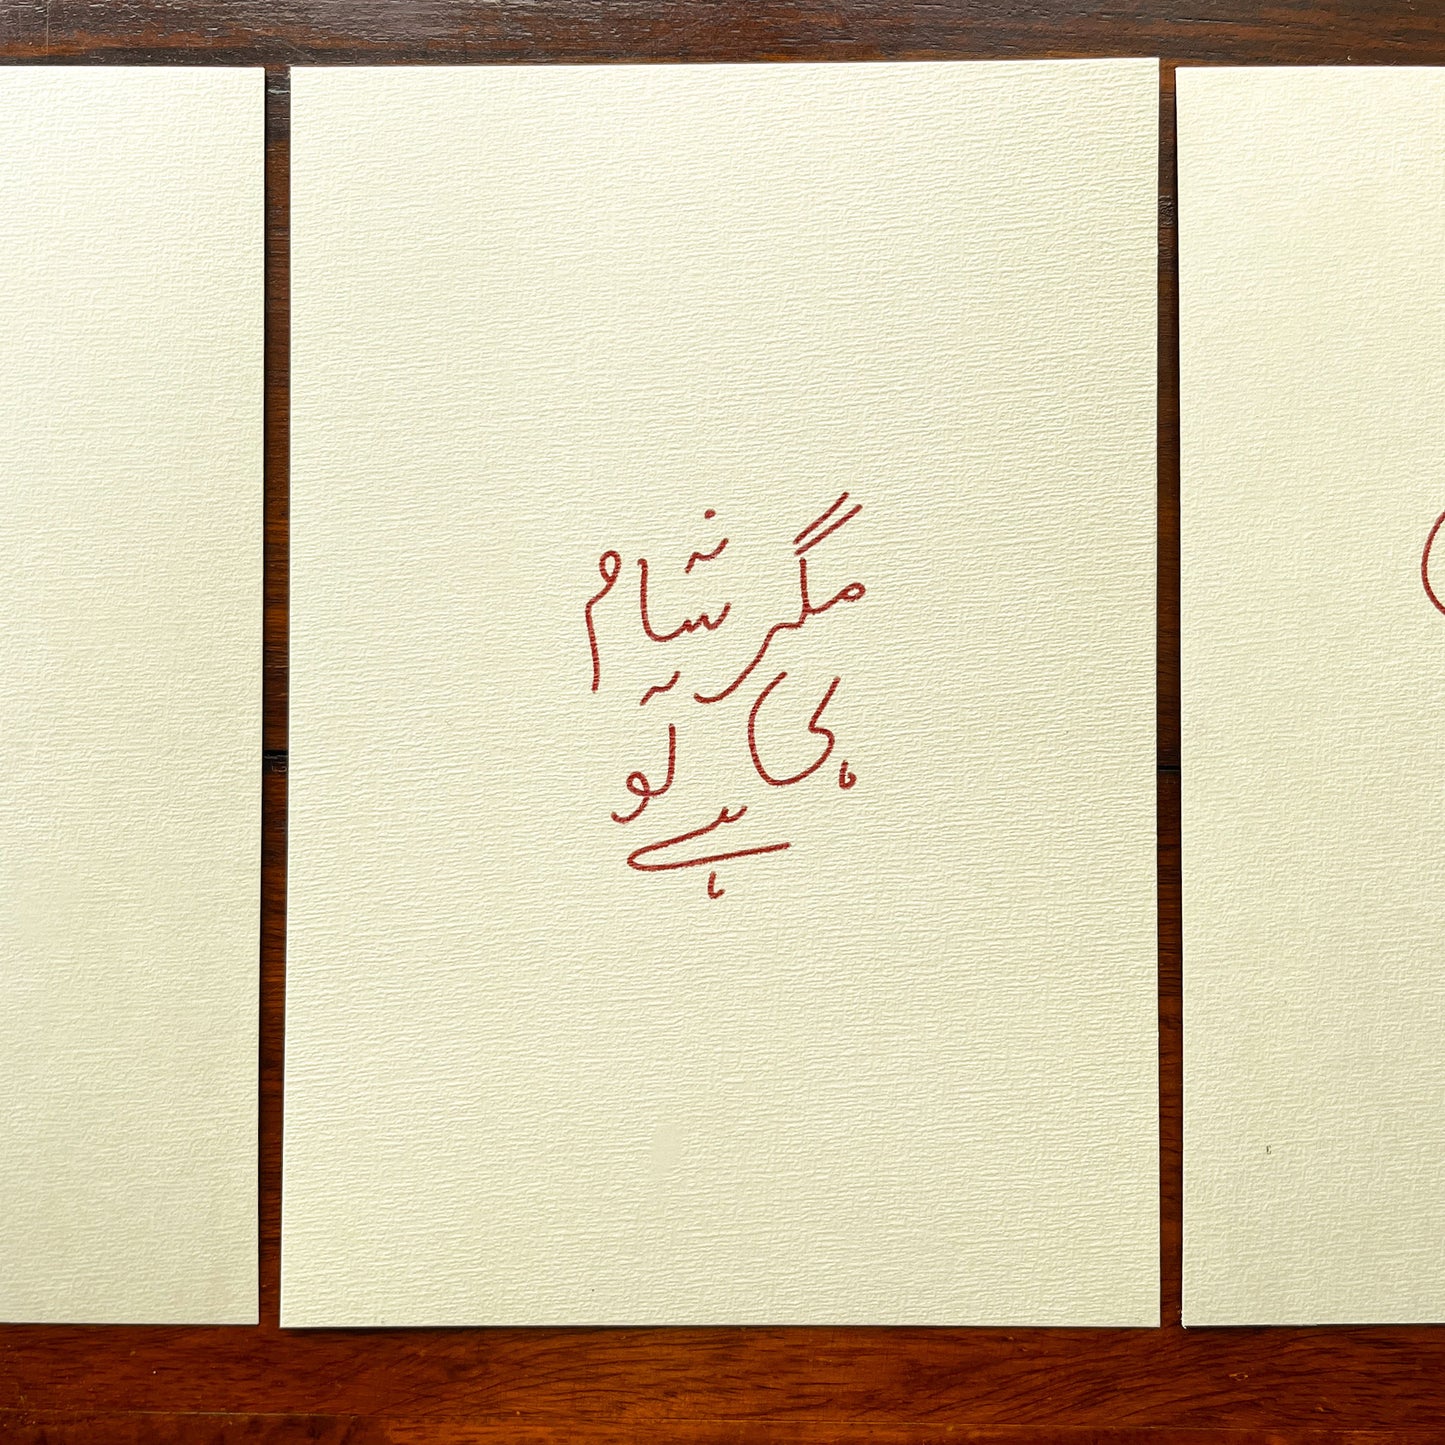 مگر شام
ہی تو
ہے